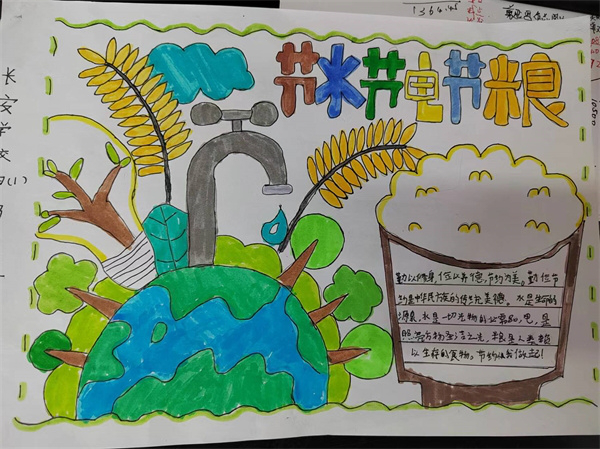 节水节电节粮
长
安
学
校
勤以修身，俭以养德，节约为美。勤俭节
约是中华民族的传统美德。水是生命的
源泉，水是一切生物的必需品，电，是
照亮万物生活之光，粮是人类赖
以生存的食物。节约从我做起！
1364.45
10500